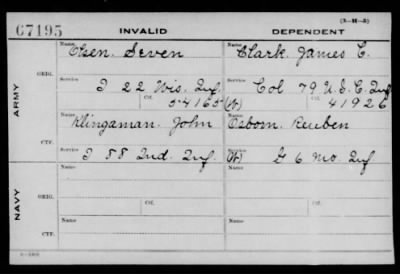 (3-M-5)
67195 INVALID DEPENDENT
ARMY
NAVY
ORIG.
Name Olsen. Seven
Name Clark. James C.
Service I 22 Wis. Inf.
Service Col 79 U.S.C. Inf
Ctf. 54165 (W)
Ctf. 41926
CTF.
Name Klingaman. John
Name Osborn. Reuben
Service I 88 Ind. Inf.
Service (W) G 6 Mo. Inf
ORIG.
Name
Name
Service
Ctf.
Service
Ctf.
CTF.
Name
Name
Service
Service